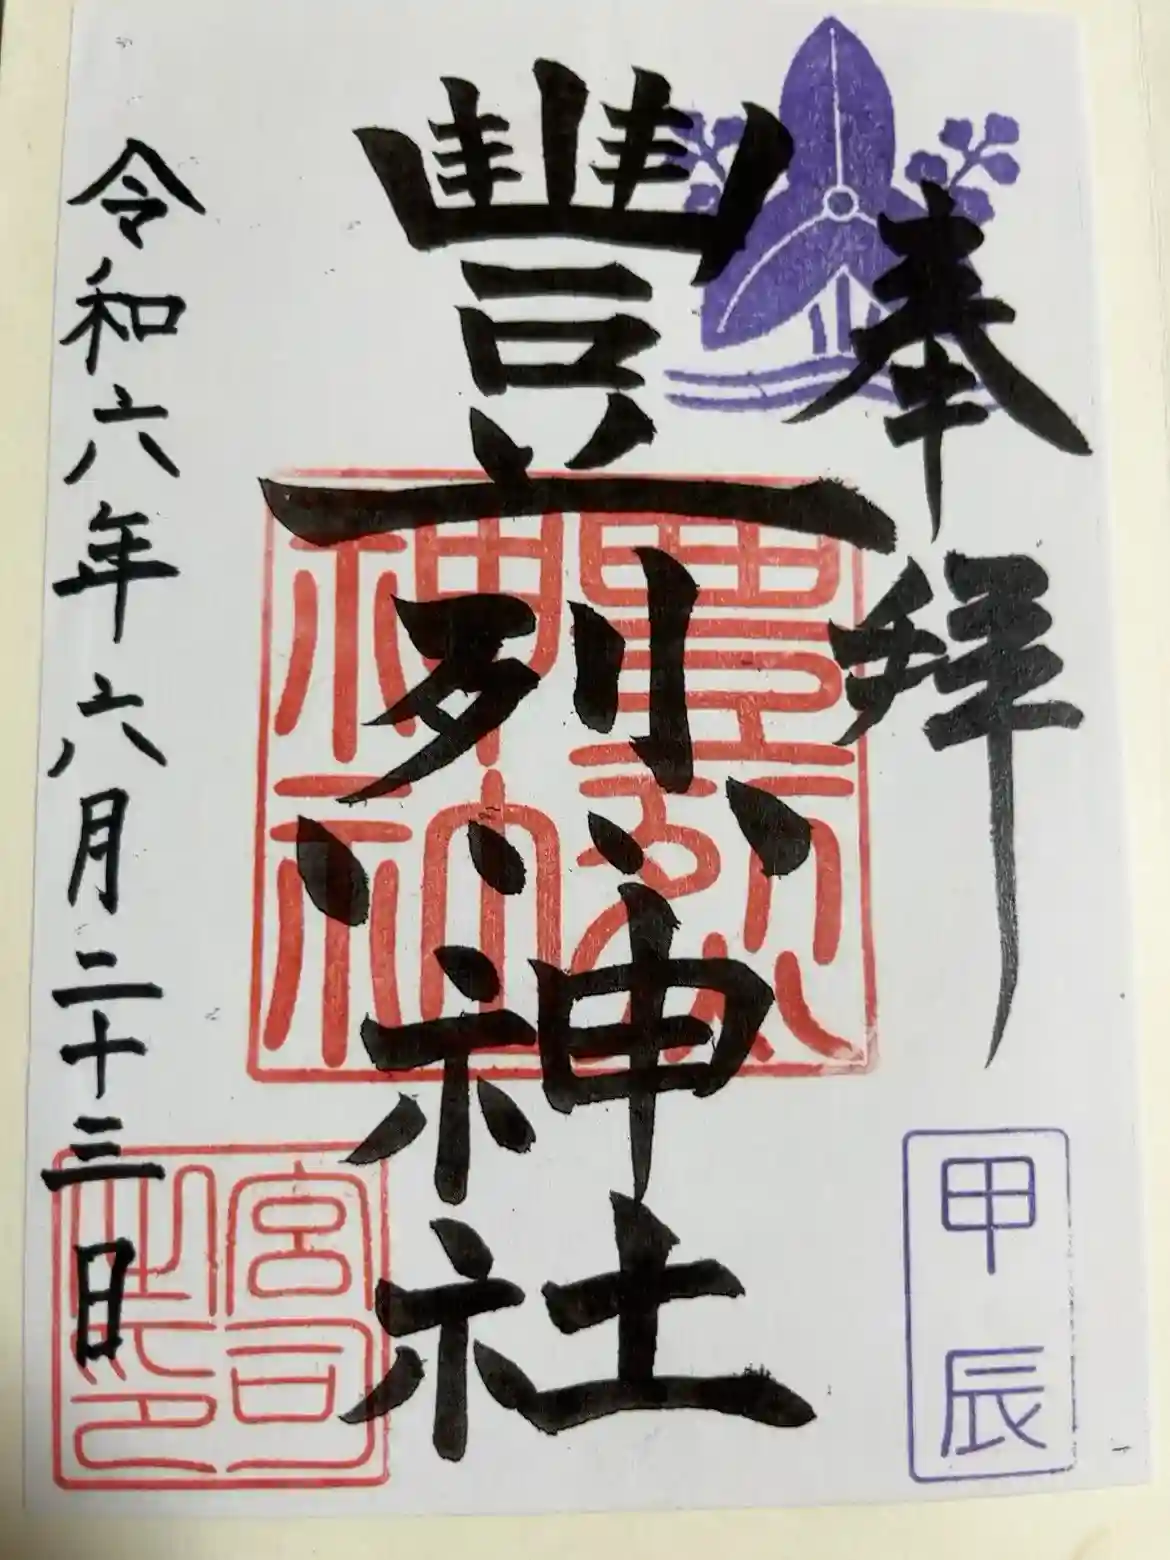 奉拝
甲辰
豊烈神社
豊烈神社
令和六年六月二十三日
宮司之印